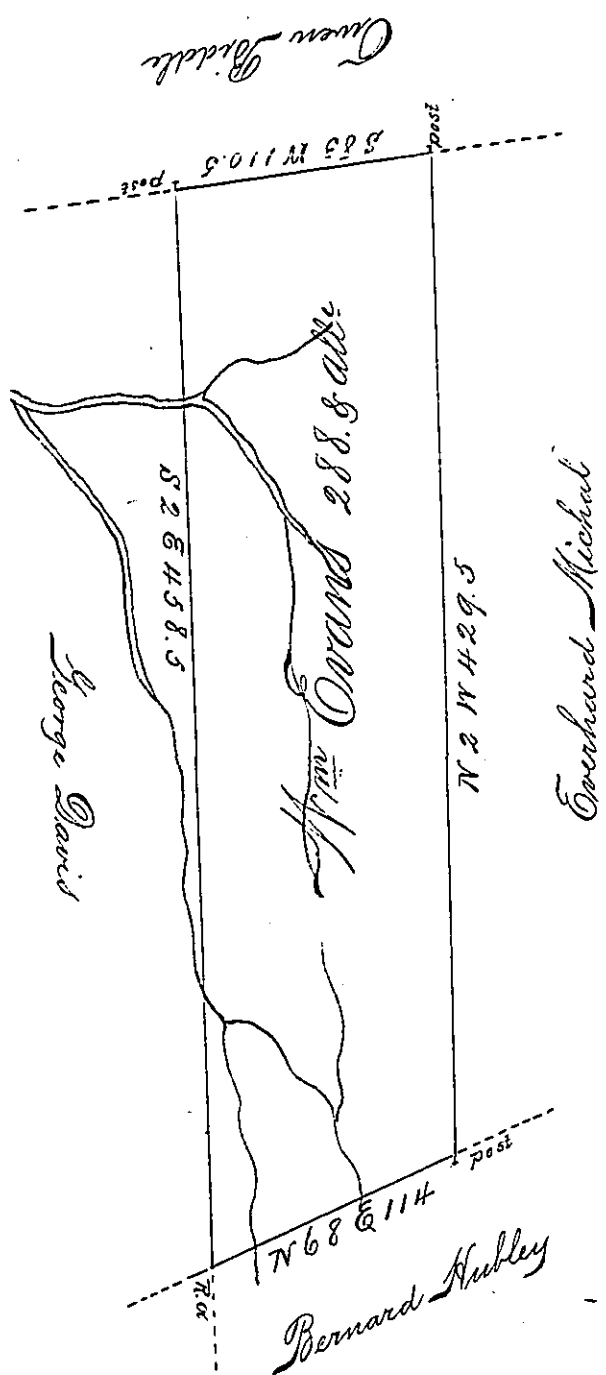 Owen Biddle
post
S 85 W 110.5
post
Wm Evans 288. & allce
S 2 E 458.5
N 2 W 429.5
Everhard Michal
George Davis
post
N 68 E 114
Bernard Hubley